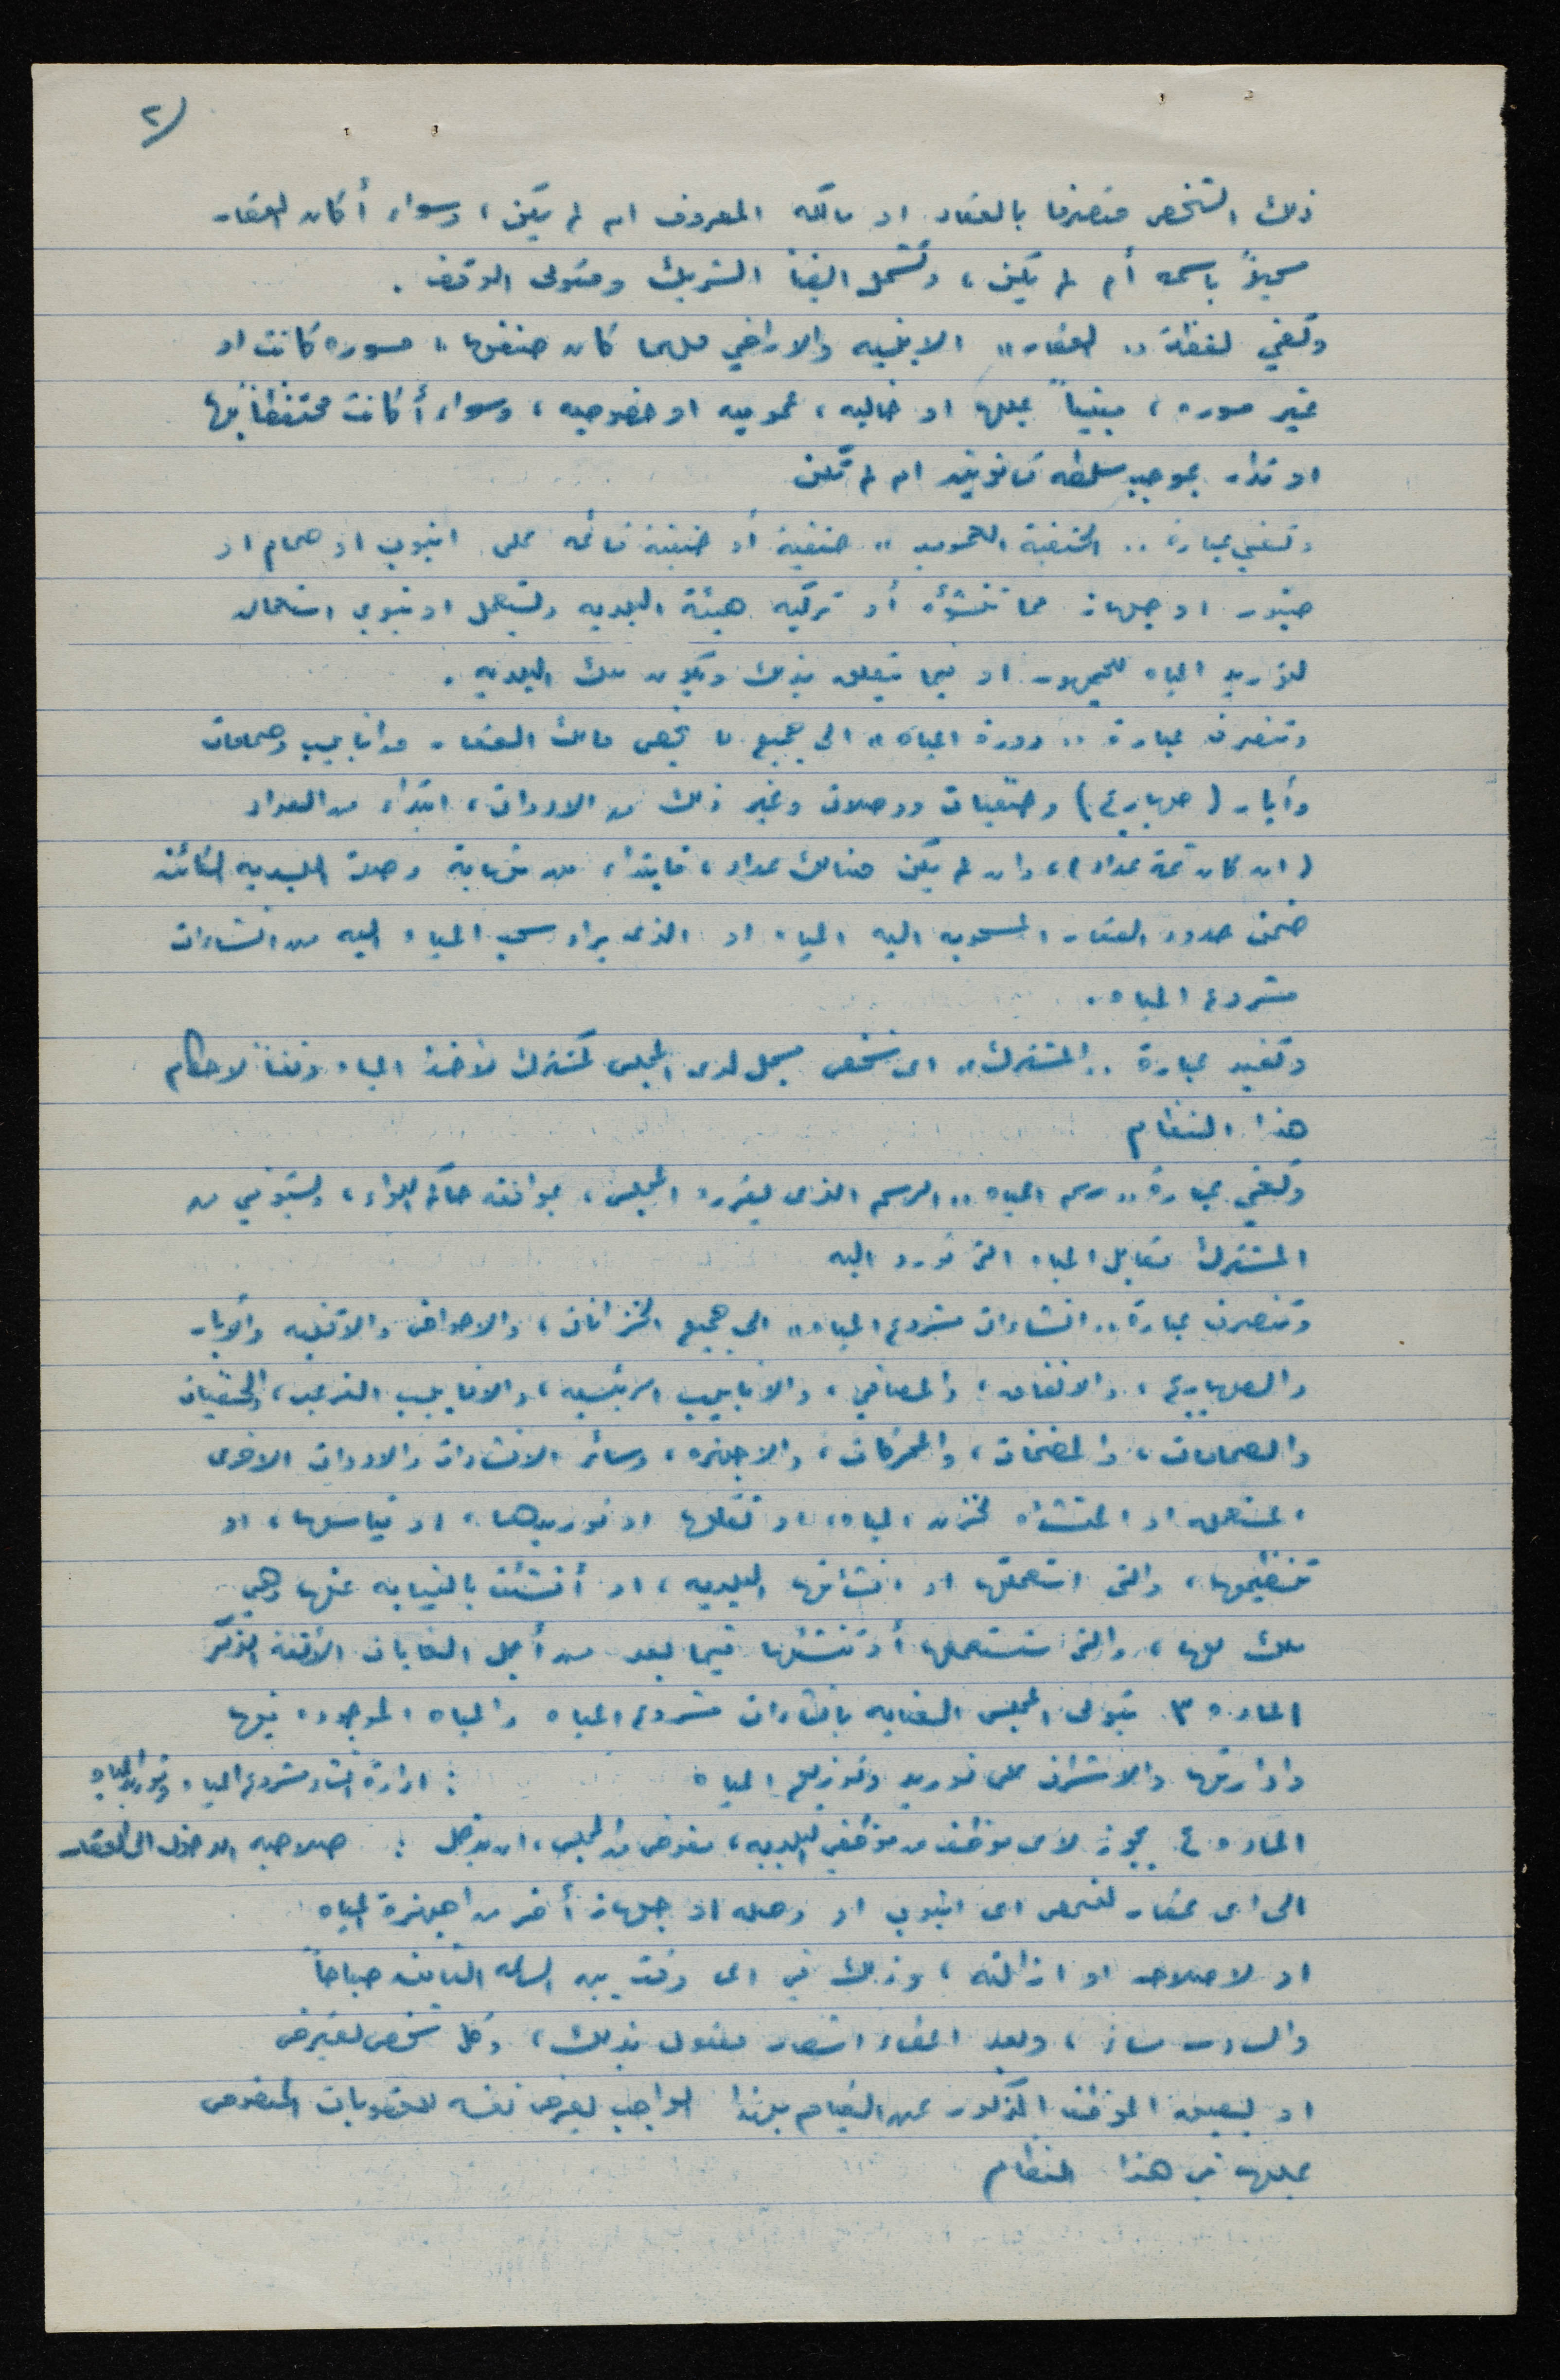 ٢/
ذلك الشخص متصرفا بالعقار او مالكه المعروف ام لم يكن ، وسواء أكان العقار
مسجلاً باسمه أم لم يكن ، وتشمل ايضاً الشريك ومتولي الوقف .
وتعني لفظة ،، العقار ،، الابنيه والاراضي مهما كان صنفها ، مسوره كانت او
غير مسوره ، مبنياً عليها او خاليه ، عموميه او خصوصيه ، وسواء أكانت محتفظاً بها
او تدار بموجب سلطه قانونيه ام لم تكن
وتعني عبارة ،، الحنفية العموميه ،، حنفية أو حنفية قائمه على انبوب او صمام او
صنبور او جهاز مما تنشؤه أو تركبه هيئة البلديه ويستعمل او ينوى استعماله
لتوريد المياه للجمهور او فيما يتعلق بذلك ويكون ملك البلديه .
وتنصرف عبارة ،، دورة المياه ،، الى جميع ما يخص مالك العقار من انابيب وصمامات
وأبار (صهاريج) وحنفيات ووصلات وغير ذلك من الادوات ، ابتداء من العداد
(ان كان ثمة عداد) ، وان لم يكن هنالك عداد ، فابتداء من نهاية وصلة البلديه الكائنه
ضمن حدود العقار المسحوبه اليه المياه او الذى يراد سحب المياه اليه من انشاءات
مشروع المياه .
وتفيد عبارة ،، المشترك ،، اى شخص مسجل لدى المجلس كمشترك لأخذ المياه وفقاً لاحكام
هذا النظام
وتعني عبارة ،، رسم المياه ،، الرسم الذى يقرره المجلس ، بموافقه حاكم اللواء ، ويستوفي من
المشترك مقابل المياه التى تورد اليه
وتنصرف عبارة ،، انشاءات مشروع المياه ،، الى جميع الخزانات ، والاحواض والاقنيه والآبار
والصهاريج ، والانفاق ، والمصافي ، والانابيب الرئيسيه ، والانابيب الفرعيه ، والحنفيات
والصمامات ، والمضخات ، والمحركات ، والاجهزه ، وسائر الانشاءات والادوات الاخرى
المستعمله او المنشأه لخزن المياه ، او نقلها او توريدها ، او قياسها ، او
تنظيمها ، والتى استعملتها او انشأتها البلديه ، او أنشئت بالنيابه عنها وهي
ملك لها ، والتى ستستعملها أو تنشئها فيما بعد من أجل الغايات الآنفة الذكر
الماده ٣ يتولى المجلس العنايه بانشاءات مشروع المياه والمياه الموجوده فيها
وادارتها والاشراف على توريد وتوزيع المياه : ادارة انشاء مشروع المياه وتوريد المياه
الماده ٤ يجوز لاى موظف من موظفي البلديه ، مفوض من المجلس ، ان يدخل : صلاحيه الدخول الى العقار
الى اى عقار لفحص اى انبوب او وصله او جهاز أخر من اجهزة المياه
او لاصلاحه او ازالته ، وذلك في اى وقت بين الساعه الثامنه صباحاً
والسادسه مساءً ، وبعد اعطاء اشعار معقول بذلك ، وكل شخص يعترض
او يعيق الموظف المذكور عن القيام بهذا الواجب يعرض نفسه للعقوبات المنصوص
عليها في هذا النظام